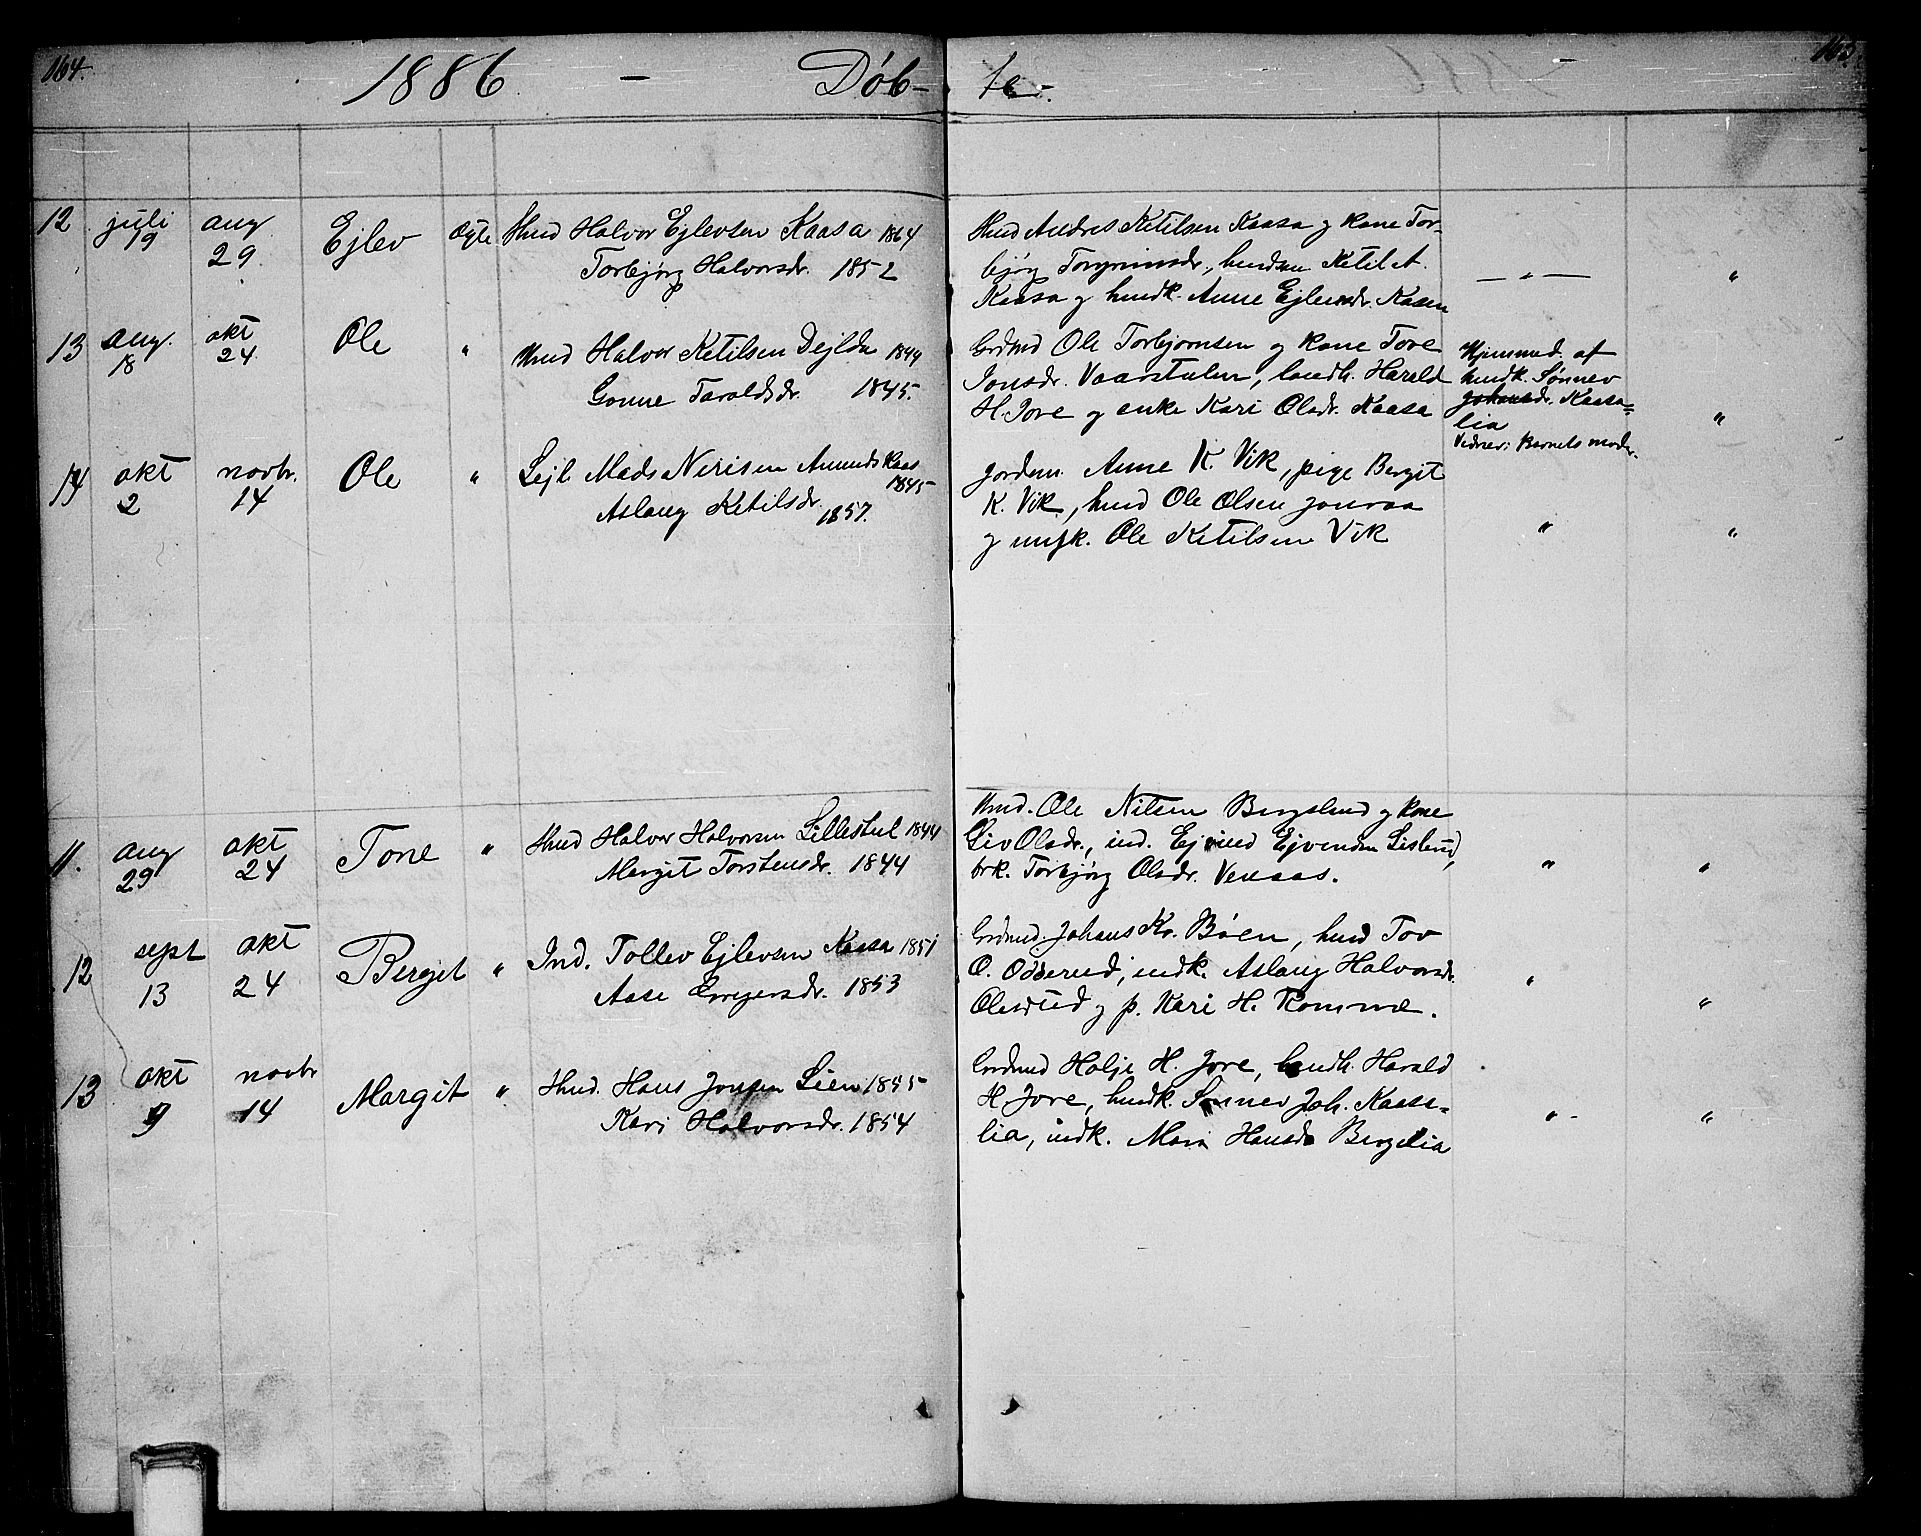 164. 1886 - Døb- te. 165.
12 juli 19 aug 29. Ejlev Egte Hmd Halvor Ejlevsen Kaasa 1864
Torbjørg Halvorsdr. 1852
Hmd Andres Ketilsen Kaasa g kone Tor-
bjørg Torgrimsdr., hmdsøn Ketil A.
Kaasa g hmdk. Anne Ejlevsdr. Kasen
— " — "
13 aug. 18 okt 24. Ole " Hmd Halvor Ketilsen Dejlda 1849
Gonne Taraldsdr. 1845.
Grdmd Ole Torbjørnsen g kone Tove
Jonsdr. Vaarstulen, landh. Harald
H. Jore g enke Kari Olsdr. Kaasa
Hjemmed. af
hmdk. Sønnev
Johansdr. Kaasa=
lia "
Vidner: Barnets moder.
14 okt 2 novbr. 14 Ole " Lejl Mads Nirisen Amunds Kaas 1845
Aslaug Ketilsdr. 1857.
Jordem. Anne K. Vik, pige Bergit
K. Vik, hmd Ole Olsen Jonraa
g ungk. Ole Ketilsen Vik
" "
11. aug 29 okt 24 Tone " Hmd Halvor Halvorsen Lillestul 1844
Margit Torstensdr. 1844
Hmd. Ole Nilsen Bergslund g kone
Liv Olsdr., ind. Ejvind Ejvendsen Lislerud,
brk. Torbjørg Olsdr. Venaas.
" "
12 sept 13 okt 24 Bergit " Ind. Tollev Ejlevsen Kaasa 1851
Aase Gregersdr. 1853
Grdmd. Johans Kr. Bøen, hmd Tov
O. Odderud, indk. Aslaug Halvorsdr.
Olesrud g p. Kari H. Romme.
" "
13 okt 9 novbr 14 Margit " Hmd. Hans Jonsen Lien 1845
Kari Halvorsdr. 1854
Grdmd Halje H. Jore, landh. Harald
H. Jore, hmdk. Sønnev Joh. Kaasa=
lia, indk. Mari Hansdr Bergelia
" - "